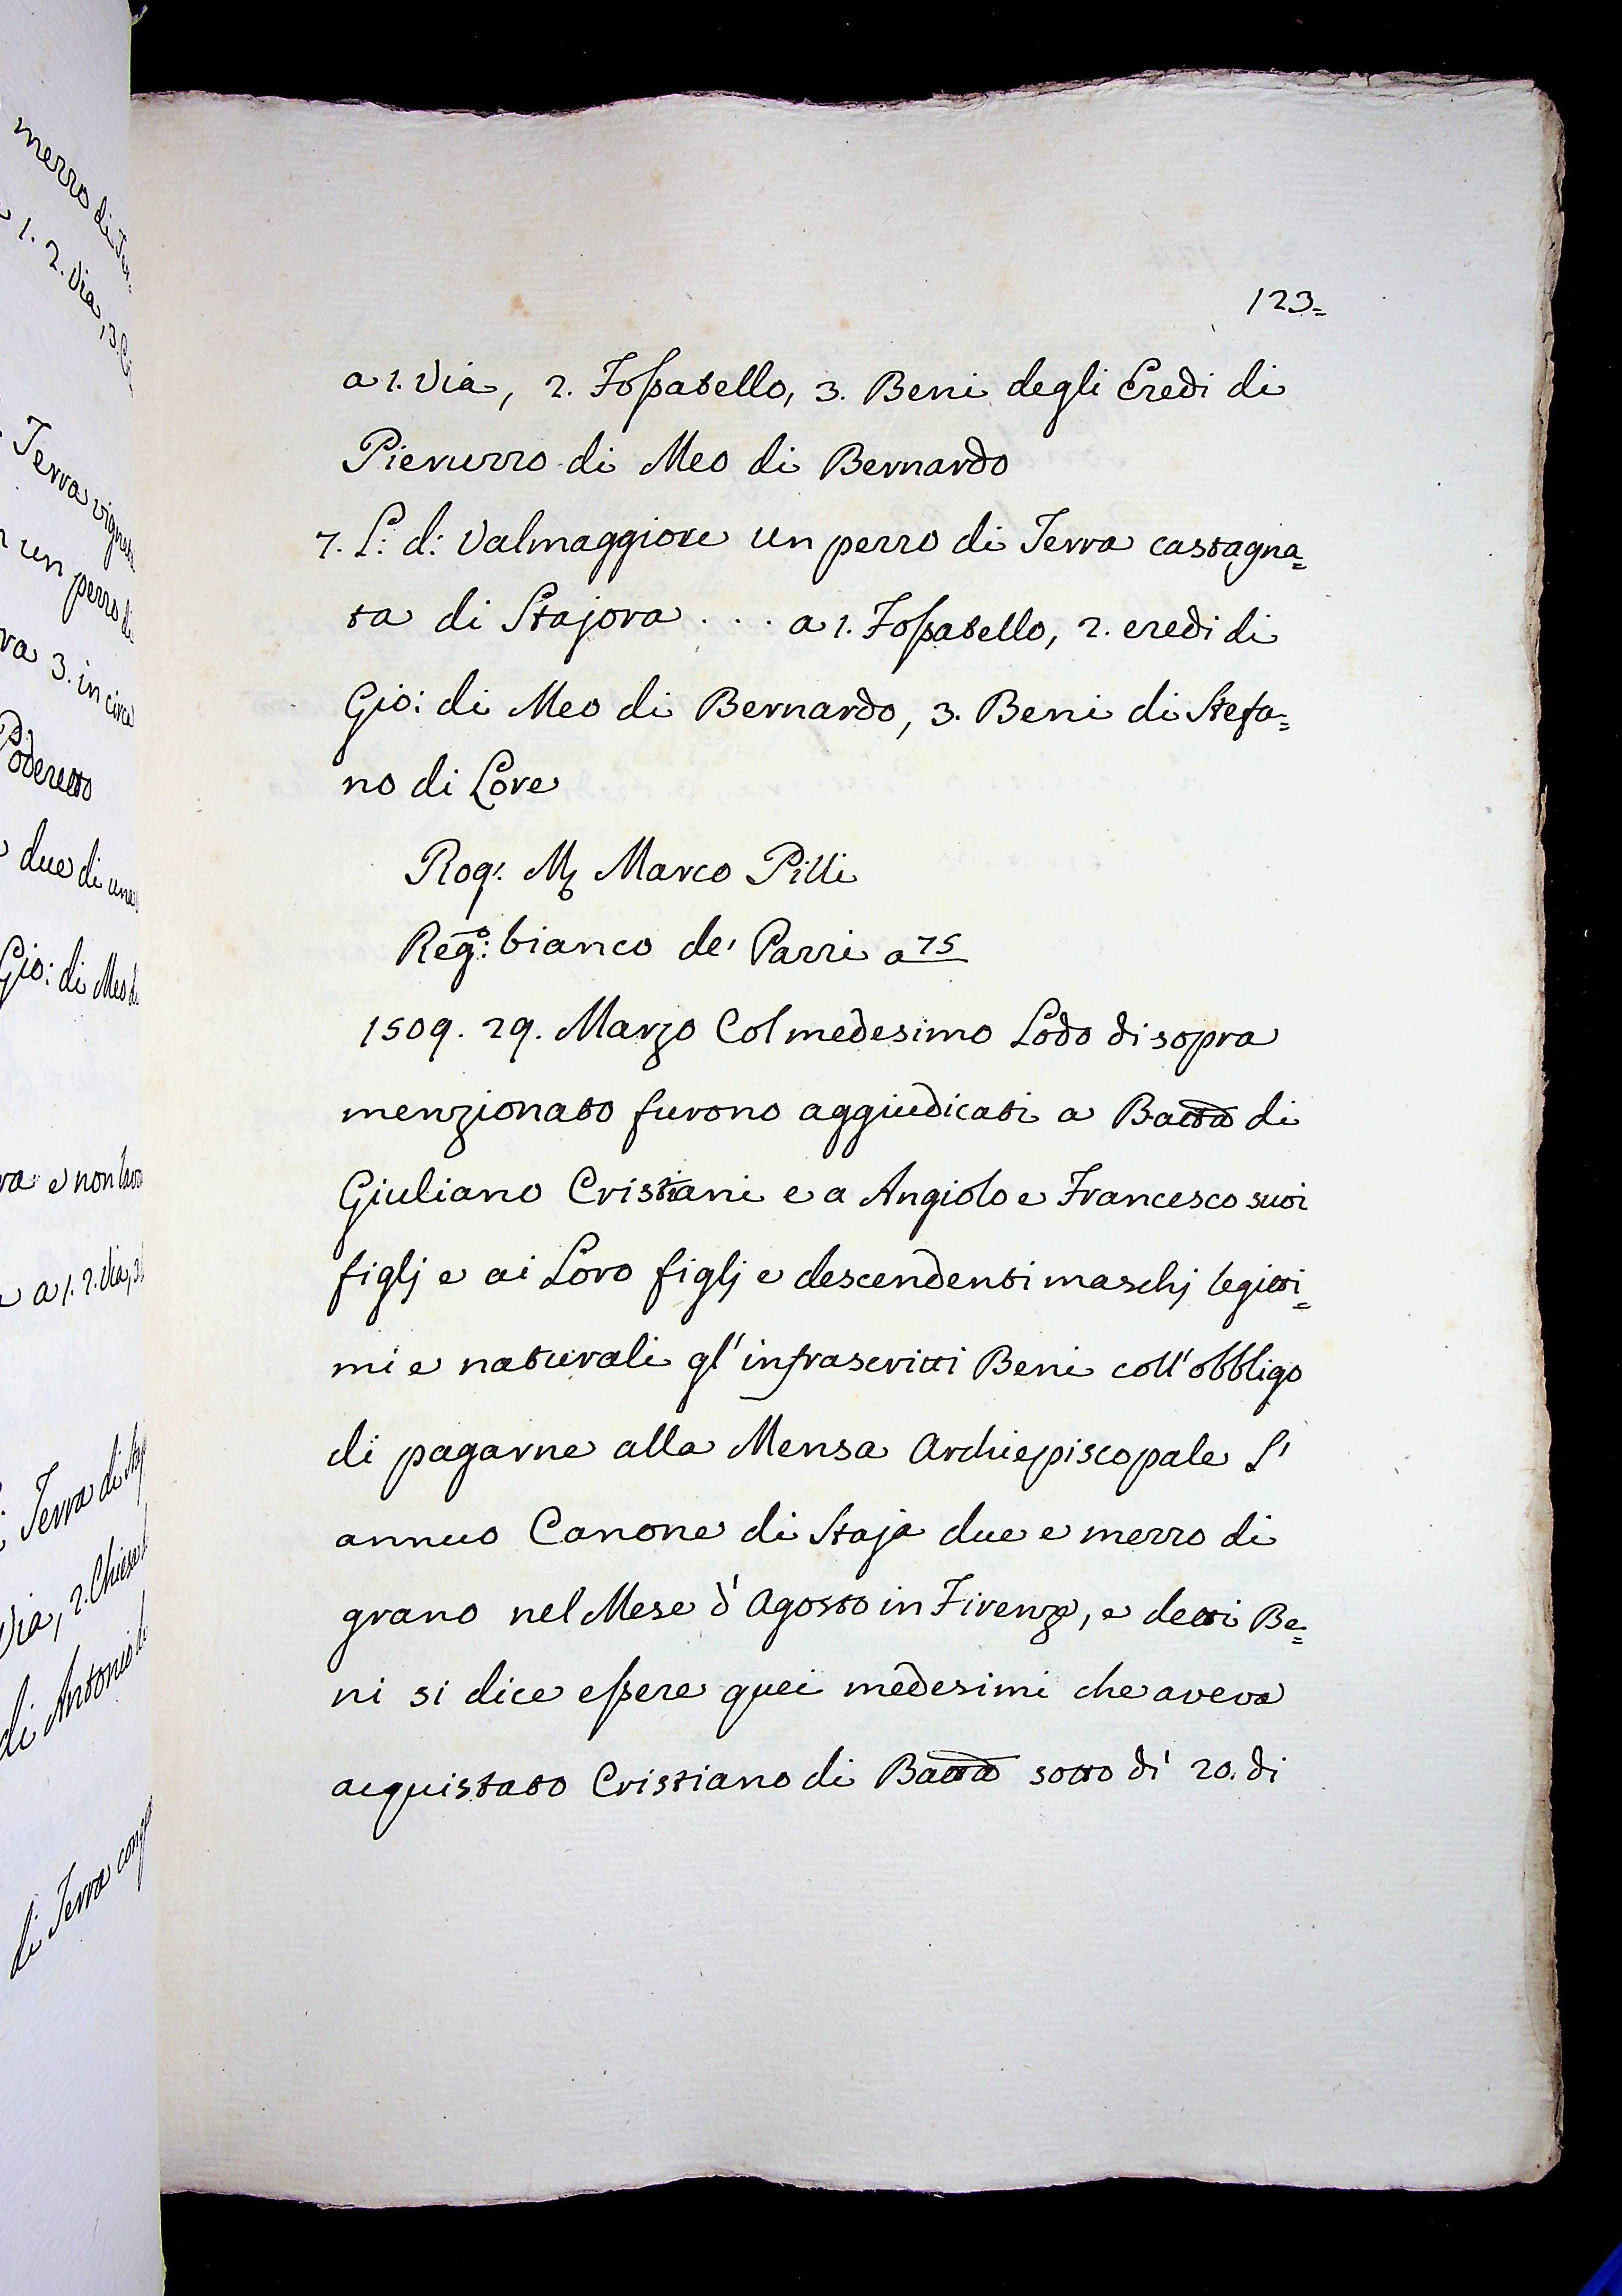 merro di Ter
1. 2. Via, 3.
Terra vigna
un perro di
va 3. in circa
Poderetto
due di una
Gio: di Meo di
ra e non lavo
a 1. 2. Via, 3.
Terra di
Via, 2. Chiesa
di Antonio di
di Terra con
123=
a 1. Via, 2. Fossatello, 3. Beni degli Eredi di
Pieruzzo di Meo di Bernardo
7. L: d: Valmaggiore un pezzo di Terra castagna=
ta di Stajora . . . . a 1. Fossatello, 2. eredi di
Gio: di Meo di Bernardo, 3. Beni di Stefa=
no di Lore
Rog: Mẹ Marco Pilli
Reg:º bianco de' Pazzi a 75
1509. 29. Marzo Col medesimo Lodo di sopra
menzionato furono aggiudicati a Batta di
Giuliano Cristiani e a Angiolo e Francesco suoi
figlj e ai Loro figlj e descendenti maschj legitti=
mi e naturali gl'infrascritti Beni coll'obbligo
di pagarne alla Mensa Archiepiscopale l'
annuo Canone di Staja due e mezzo di
grano nel Mese d'Agosto in Firenze, e detti Be=
ni si dice essere quei medesimi che aveva
acquistato Cristiano di Batta sotto dì 20. di